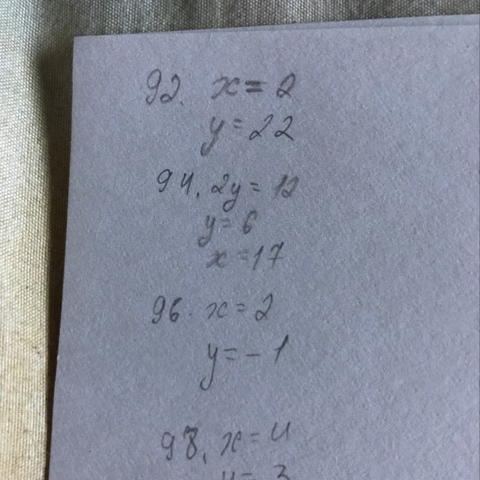 92. x = 2
y = 22
94. 2y = 12
y = 6
x = 17
96. x = 2
y = - 1
98. x = 4
y = 3